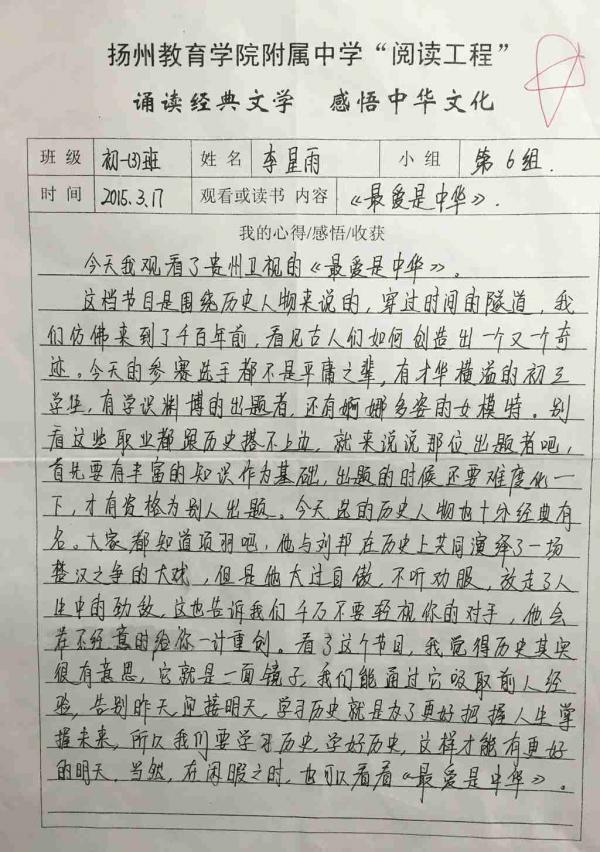 扬州教育学院附属中学“阅读工程”
诵读经典文学 感悟中华文化
班级 初一(3)班 姓名 李星雨 小组 第6组.
时间 2015.3.17 观看或读书 内容 《最爱是中华》.
我的心得/感悟/收获
今天我观看了贵州卫视的《最爱是中华》。
这档节目是围绕历史人物来说的，穿过时间的隧道，我
们仿佛来到了千百年前，看见古人们如何创造出一个又一个奇
迹。今天的参赛选手都不是平庸之辈，有才华横溢的初三
学生，有学识渊博的出题者，还有婀娜多姿的女模特。别
看这些职业都跟历史搭不上边，就来说说那位出题者吧，
首先要有丰富的知识作为基础，出题的时候还要难度化一
下，才有资格为别人出题。今天选的历史人物也十分经典有
名。大家都知道项羽吧，他与刘邦在历史上共同演绎了一场
楚汉之争的大戏，但是他太过自傲，不听劝服，放走了人
生中的劲敌，这也告诉我们千万不要轻视你的对手，他会
在不经意时给你一计重创。看了这个节目，我觉得历史其实
很有意思，它就是一面镜子，我们能通过它吸取前人经
验，告别昨天，迎接明天，学习历史就是为了更好把握人生掌
握未来，所以我们要学习历史，学好历史，这样才能有更好
的明天。当然，在闲暇之时，也可以看看《最爱是中华》。